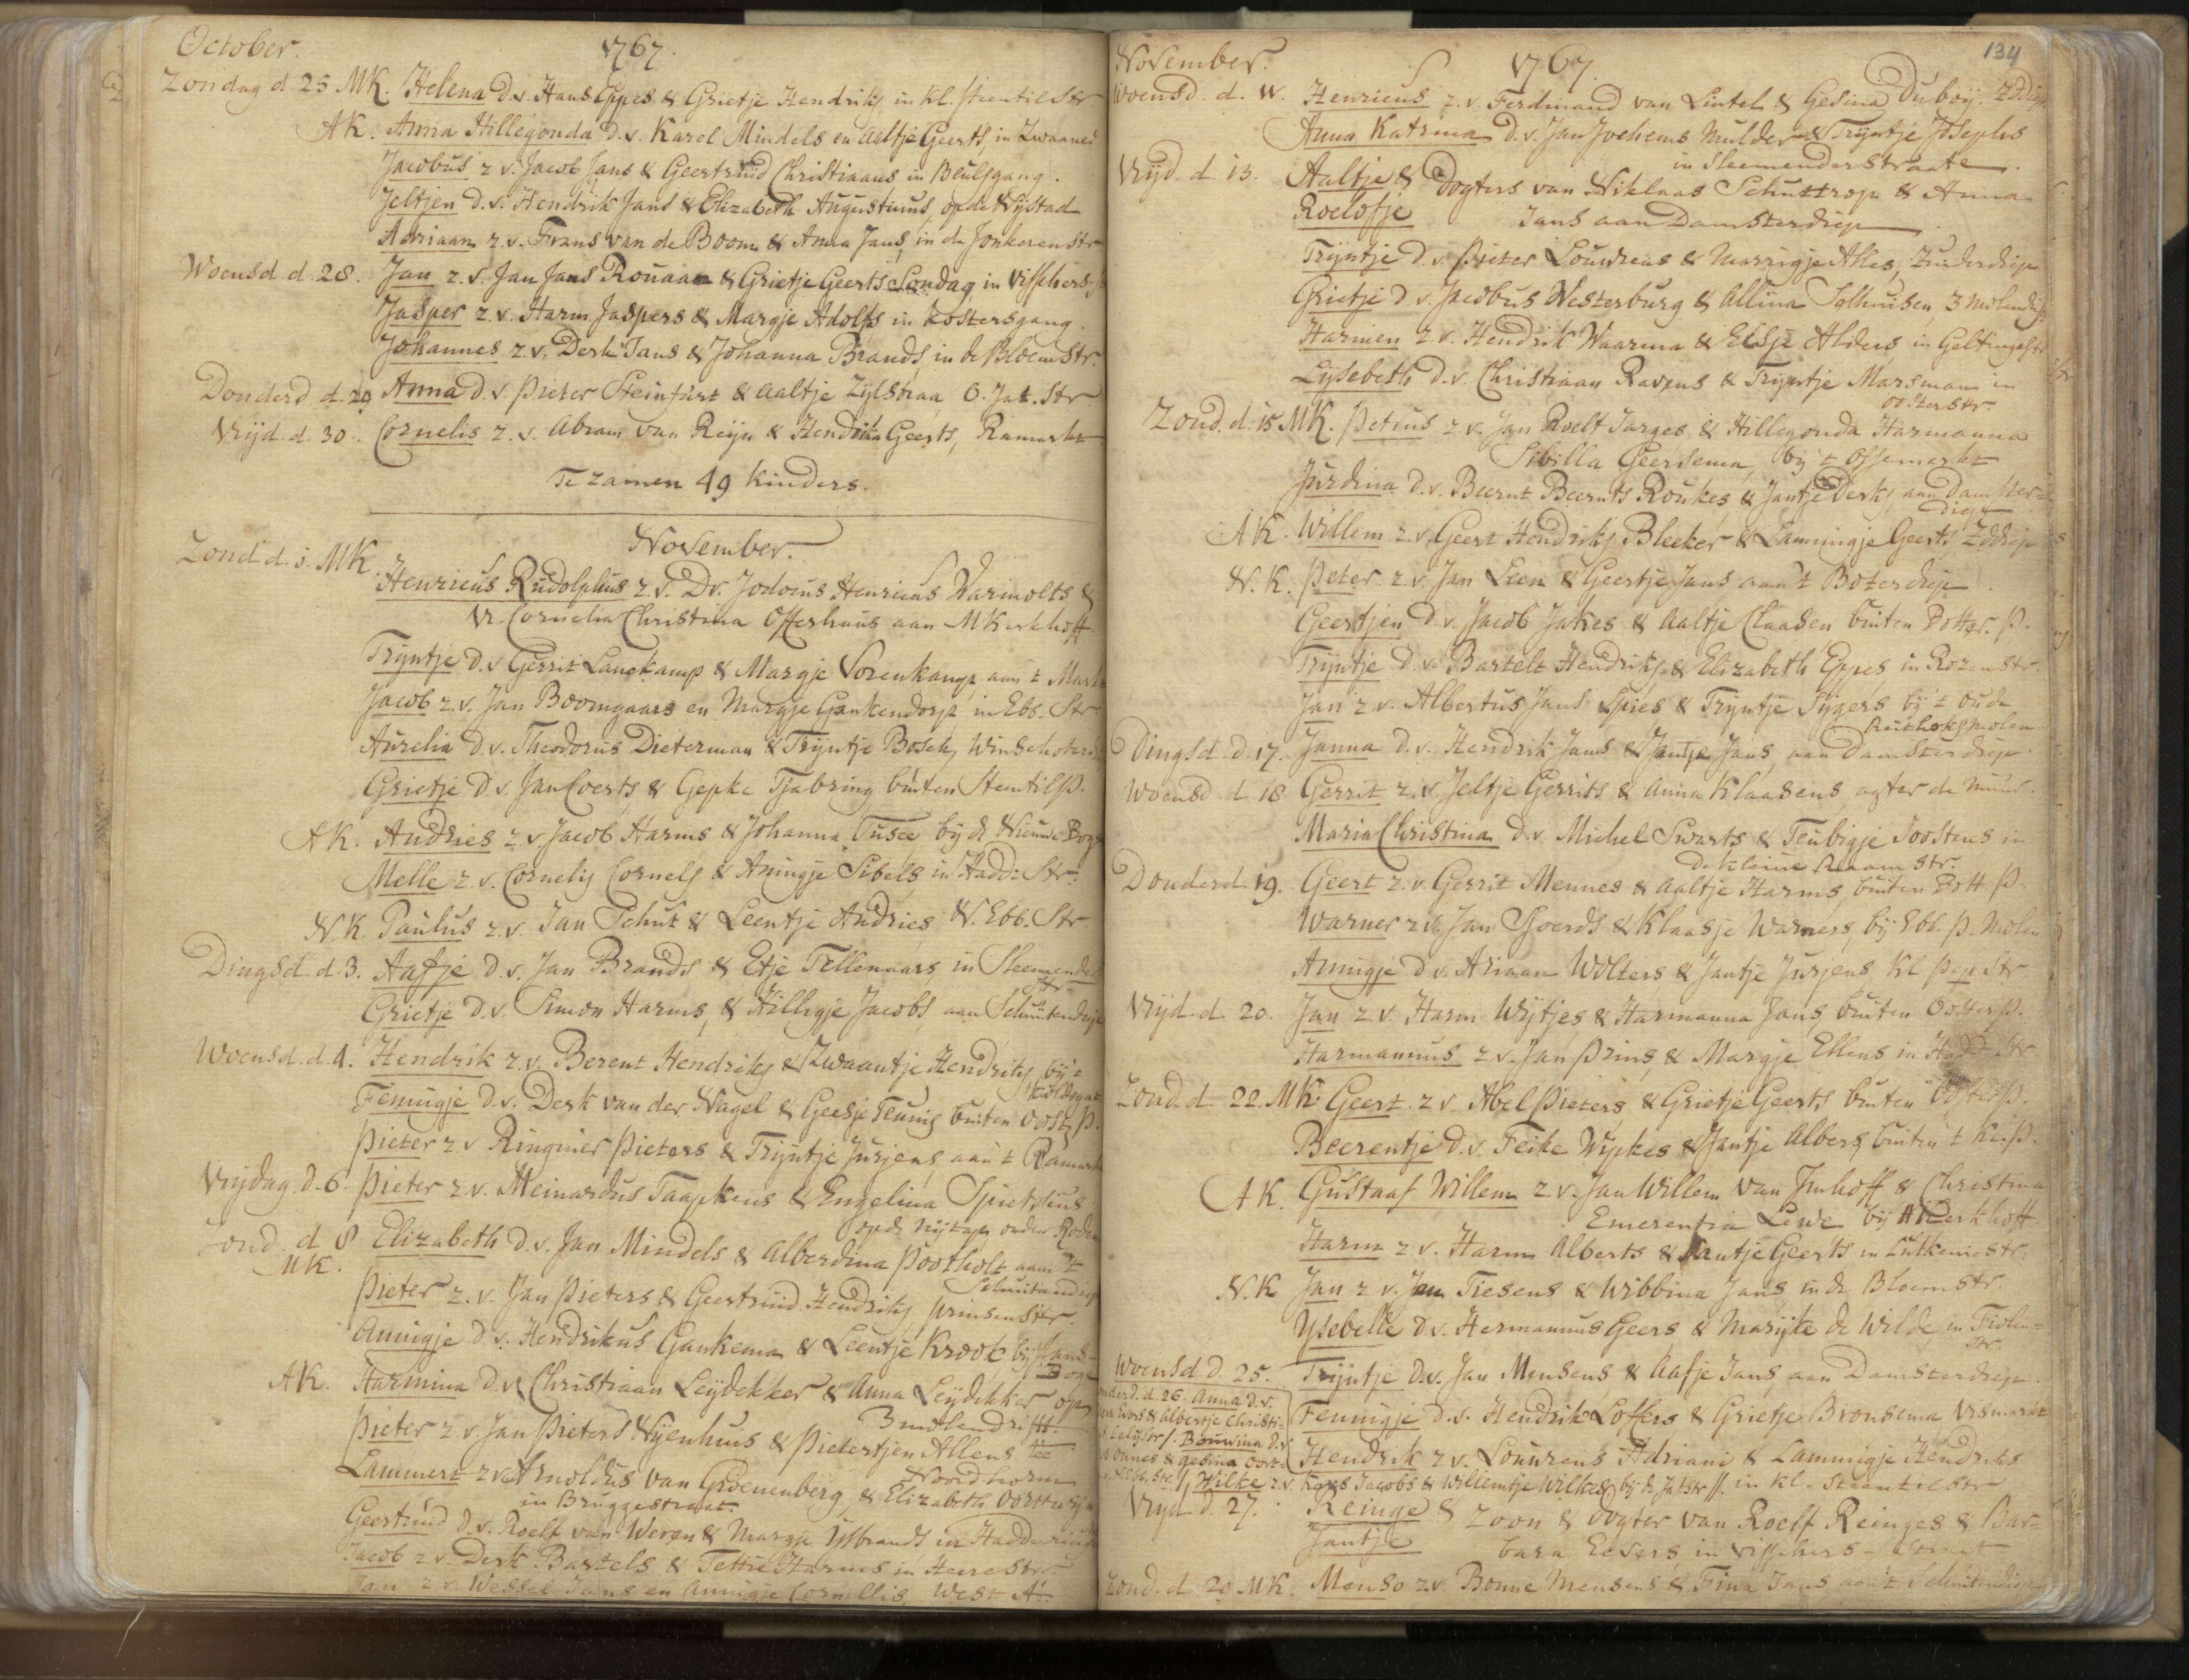 October. 1767.
Zondag d. 25 MK. Helena D.v. Hans Eppes & Grietje Hendriks in kl. steentilstr.
AK. Anna Hillegonda D.v. Karel Mindels en Aaltje Geerts, in Zwaanes
Jacobus z v. Jacob Jans & Geertruid Christiaans in Beulsgang.
Jeltjen D.v. Hendrik Jans & Elizabeth Augustinus, op de Nystad
Adriaan z.v. Frans van de Boom & Anna Jans, in de Jonkerenstr
Woensd. d. 28. Jan z.v. Jan Jans Rouaan & Grietje Geerts Sondag, in Visschers
Jasper z.v. Harm Jaspers & Margje Adolfs in kostersgang.
Johannes z v. Derk Jans & Johanna Brands, in de Bloemstr.
Donderd. d. 29 Anna D.v. Pieter Steinfurt & Aaltje Zylstraa O. Jat. Str
Vrijd. d. 30. Cornelis z.v. Abram van Reijn & Hendrika Geerts, Ramarkt
Te zamen 49 kinders.
November.
Zond. d. 1. MK. Henricus Rudolphus z.v. Dr. Jodocus Henricus Warmolts &
Vr. Cornelia Christina Offerhaus aan MKerkhoff
Trijntje D.v. Gerrit Lanekamp & Margje Vorenkamp, aan 't Markt
Jacob z.v. Jan Boomgaars en Margje Gankendorp in Ebb. Str
Aurelia D.v. Theodorus Dieterman & Trijntje Bosch, Winschoter
Grietje D.v. Jan Coerts & Gepke Tjabring buiten SteentilP.
AK. Andries z.v. Jacob Harms & Johanna Tusce bij de Nieuwe Bog
Melle z.v. Cornelis Cornels & Annigje Sibels, in Hadd: Str:
N.K. Paulus z.v. Jan Schut & Leentje Andries N. Ebb. Str
Dingsd. d. 3. Aafje D.v. Jan Brands & Etje Tellenaars, in Sleemender
str.
Grietje D.v. Simon Harms, & Hilligje Jacobs, aan Schuitendiep
Woensd. d. 4. Hendrik z.v. Berent Hendriks & Zwaantje Hendriks, bij 't
Fennigje D.v. Derk van der Nagel & Geesje Teunis buiten Oost. P.
Pieter z v Ringnier Pieters & Trijntje Jurjens, aan 't Ramarkt
Vrijdag d. 6. Pieter z.v. Meinardus Taapkens & Engelina Spietsius
op de nijtap onder Roden
Zond. d 8 Elizabeth D.v. Jan Mindels & Alberdina Pootholt aan 't
MK. Schuitendiep
Pieter z.v. Jan Pieters & Geertruid Hendriks, prinsenstr.
Annigje D.v. Hendrikus Gankema & Leentje Kroot bij Jans
Bog
AK. Harmina D.v. Christiaan Leijdekker & Anna Leijdekker op
3 molendrift
Pieter z v. Jan Pieters Nijenhuis & Pietertjen Allens te
Noordhorn
Lammert z v. Arnoldus van Groenenberg, & Elizabeth Oortwijn
in Bruggestraat
Geertruid D.v. Roelf van Weren & Margje IJsbrands in Hadderind
Jacob z v. Derk Bartels & Tettie Harms in Heerestr
Jan z v. Wessel Jans en Annigje Cornellis, West A
November. 1767. 134
Woensd. d. 11. Henricus z.v. Ferdinand van Lintel & Gesina Duboy. Zddiep
Anna Katrina D.v. Jan Jochems Mulder & Trijntje Josephs
in Sleemenderstraate
Vrijd. d. 13. Aaltje & Dogters van Niklaas Schuttrop & Anna
Roelofje Jans aan Damsterdiep
Trijntje D.v. Pieter Louwrens & Marrigje Alles, Zuiderdiep
Grietje D.v. Jacobus Westerburg & Allina Solhuisen, 3 molendr
Harmen z.v. Hendrik Waarma & Elsje Alders, in Geltingestr
Lijsebeth D.v. Christiaan Ravens & Trijntje Marsmans in
oosterstr.
Zond. d. 15 MK. Petrus z v. Jan Roelf Jarges & Hillegonda Harmanna
Sibilla Geersema, bij 't Ossemarkt
Jurdina D.v. Beernt Beernts Roukes, & Jantje Derks, aan Damster=
diep
AK. Willem z.v. Geert Hendriks Bleeker & Lammigje Geerts Zddiep
N.K. Peter z.v. Jan Leen & Geertje Jans aan't Boterdiep
Geertjen D.v. Jacob Jakes & Aaltje Claasen buiten Botter. P.
Trijntje D.v. Bartelt Hendriks & Elizabeth Eppes in Rozenstr
Jan z v. Albertus Jans Spies & Trijntje Sijgers bij 't oude
molen
Dingsd. d. 17. Janna D.v. Hendrik Jans & Jantje Jans, aan Damsterdiep.
Woensd. d 18 Gerrit z.v. Jeltje Gerrits & Anna Klaasens, agter de muur.
Maria Christina D.v. Michel Swarts & Teubigje Joostens in
de kleine Raamstr.
Donderd. 19. Geert z.v. Gerrit Mennes & Aaltje Harms, buiten Bott. P.
Warner z.v. Jan Sjoerds & Klaasje Warners, bij Ebb. P. Molen
Annigje D.v. Ariaan Wolters & Jantje Jurjens, kl. pepstr.
Vrijd. d. 20. Jan z v. Harm Wijtjes & Harmanna Jans, buiten Oosterp.
Harmannus z.v. Jan Prins, & Margje Ellens, in Hadd. Str
Zond. d 22. MK. Geert z v. Abel Pieters, & Grietje Geerts buiten Oosterp.
Beerentje D.v. Feike Wipkes & Jantje Albers, buiten 't kl. P.
AK. Gustaaf Willem z.v. Jan Willem van Imhoff & Christina
Emerentia Lewe bij AKerkhoff
Harm z v. Harm Alberts & Jantje Geerts in Lutkeniestr.
N.K Jan z v. Jan Tiesens & Wibbina Jans in de Bloemstr.
Ysebelle D.v. Hermannus Geers & Marijke de Wilde in Fiolen=
Str.
Woensd D. 25. Trijntje D.v. Jan Mensens & Aafje Jans, aan Damsterdiep.
d. 26. Anna D.v.
Evers & Albertje Christi=
Fennigje D.v. Hendrik Loffers & Grietje Bronsema Vismarkt
Lelijstr/. Bouwina D.v.
Onnes & Gesina Oort
Hendrik z.v. Lourens Adriani & Lammigje Hendriks
Ebb. Str. // Wilke z.v. Jacobs & Willemtje Wilkes bij de Jatstr //. in kl. Steentilstr
Vrijd. d. 27. Reinge & Zoon & Dogter van Roelf Reinges & Bar=
Jantje bara Eevers in visschers-straat
Zond. d 29 MK. Menso z.v. Bonne Mensens & Fina Jans aan't Schuitendiep